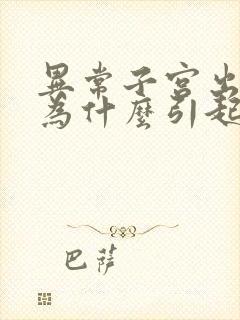 異常子宮出
為什麼引起
巴薩